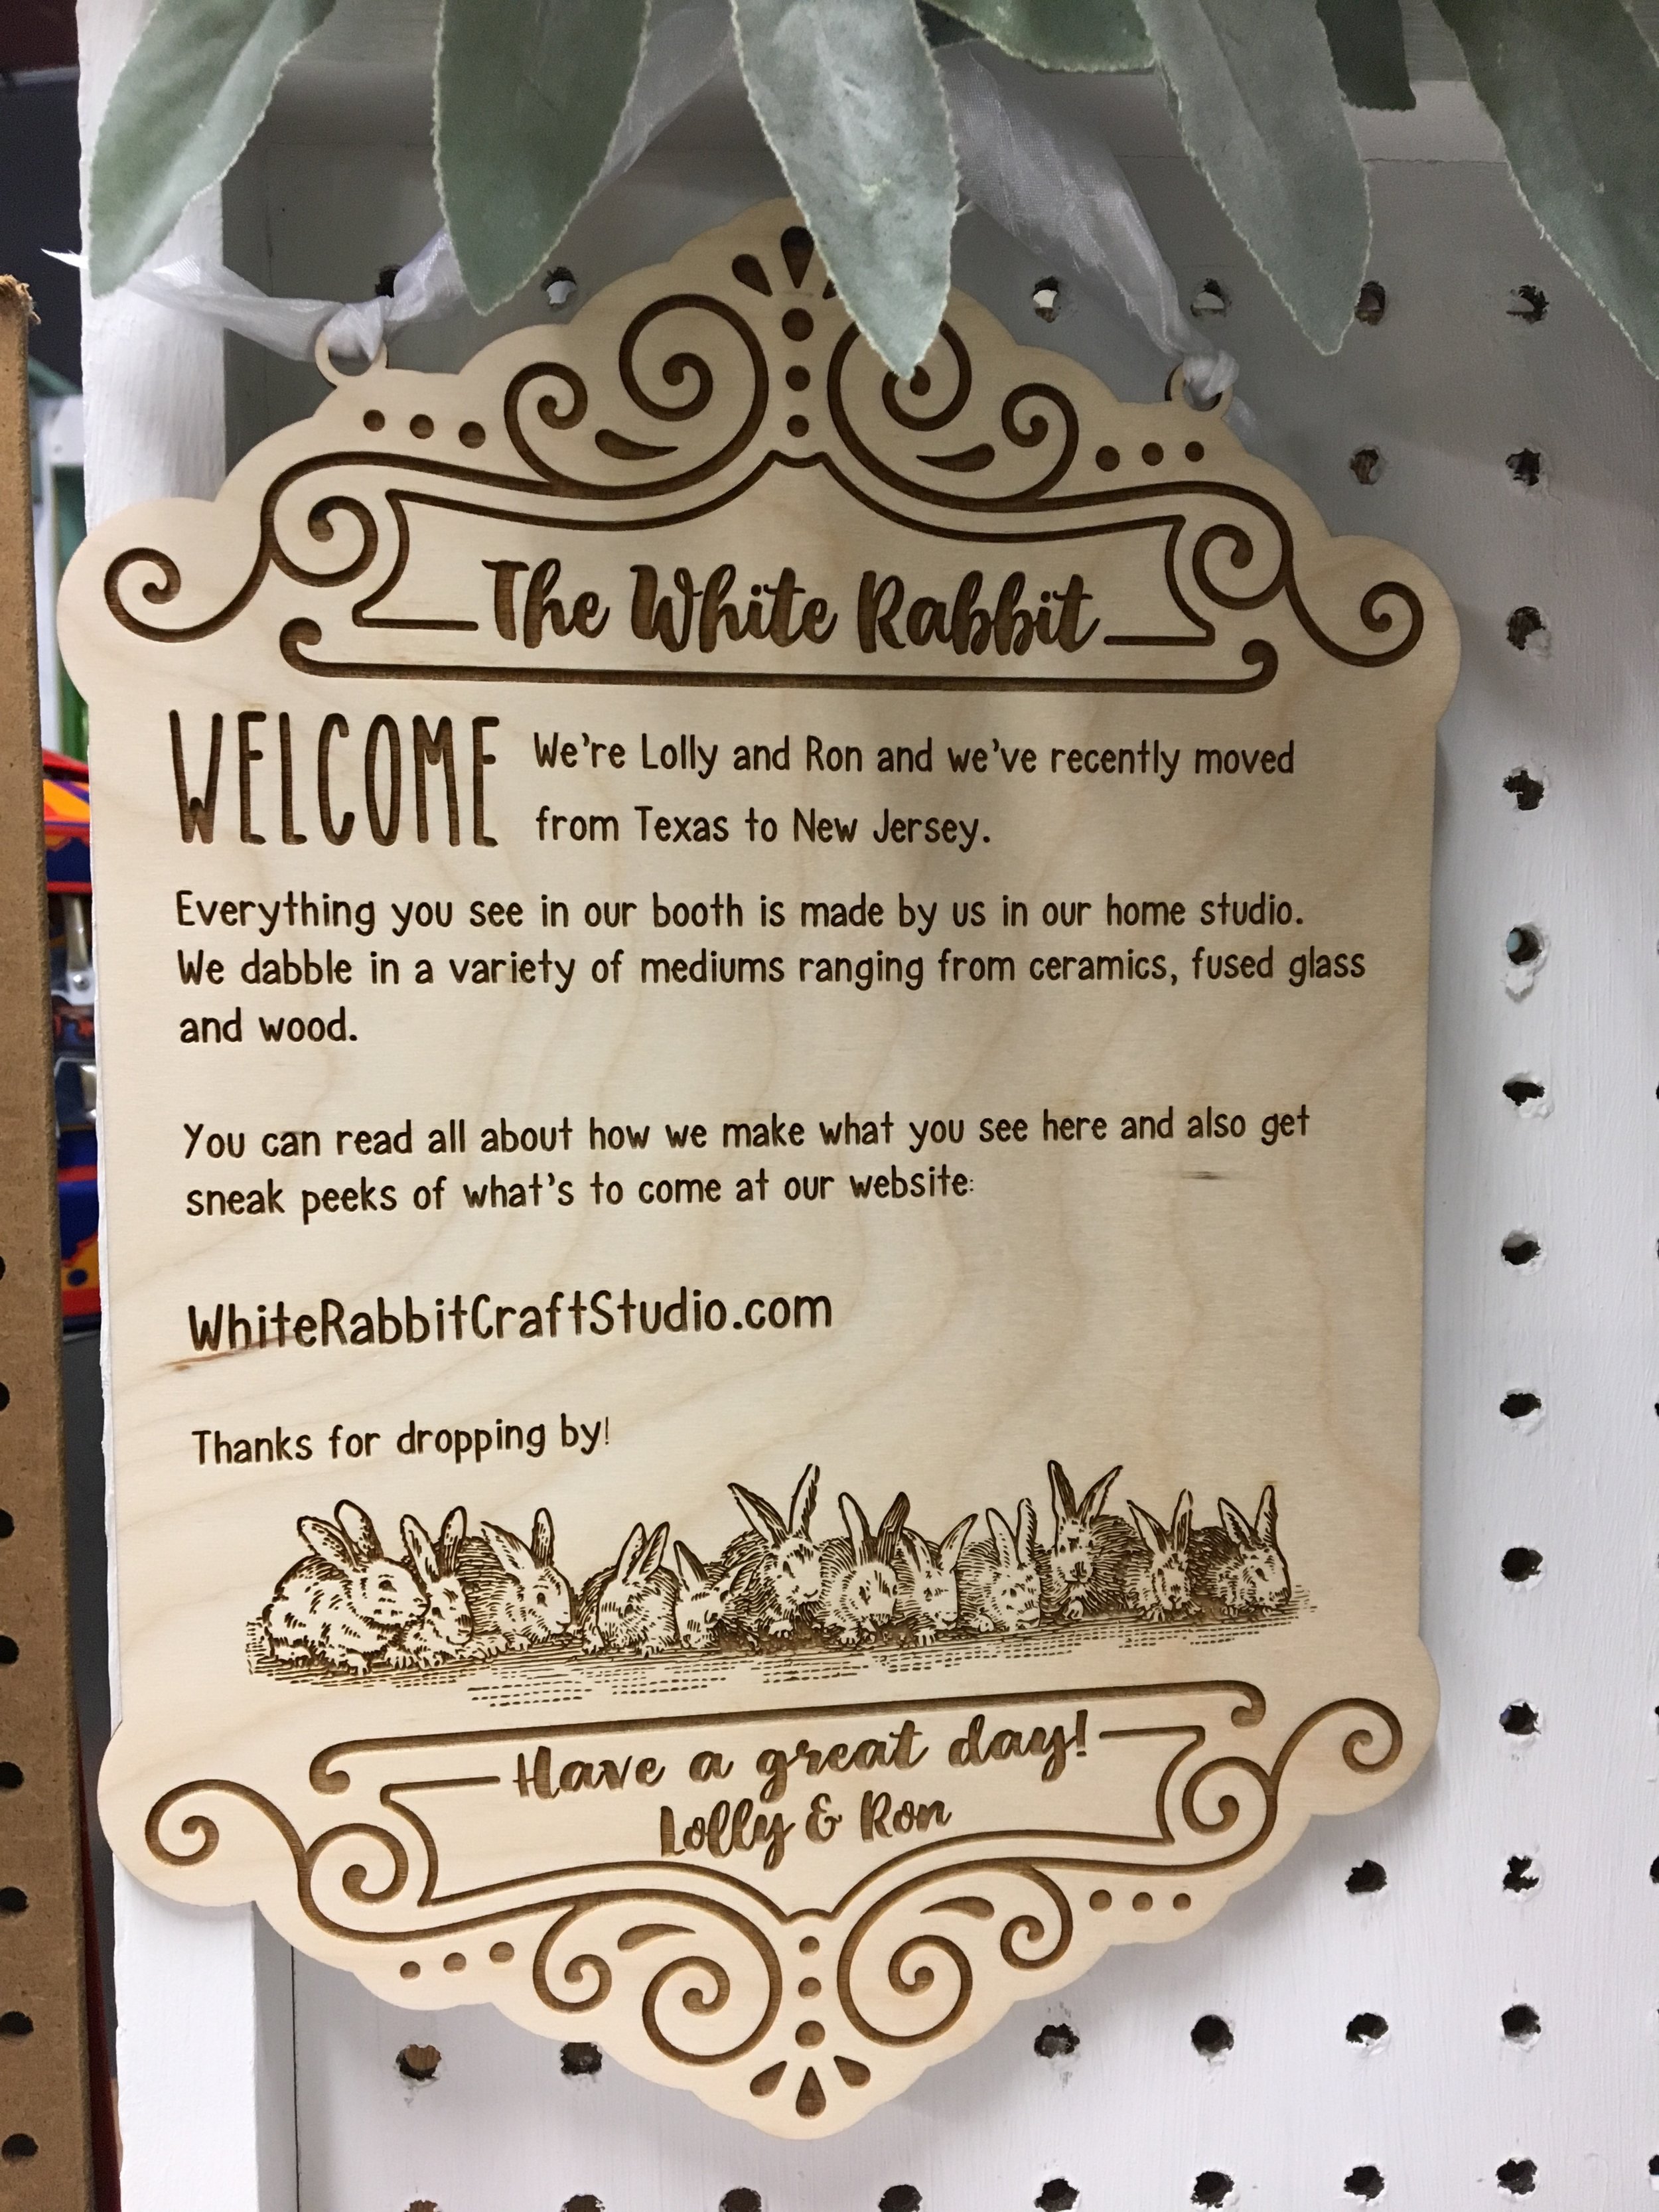 The White Rabbit
WELCOME We're Lolly and Ron and we've recently moved
from Texas to New Jersey.
Everything you see in our booth is made by us in our home studio.
We dabble in a variety of mediums ranging from ceramics, fused glass
and wood.
You can read all about how we make what you see here and also get
sneak peeks of what's to come at our website:
WhiteRabbitCraftStudio.com
Thanks for dropping by!
Have a great day!
Lolly & Ron